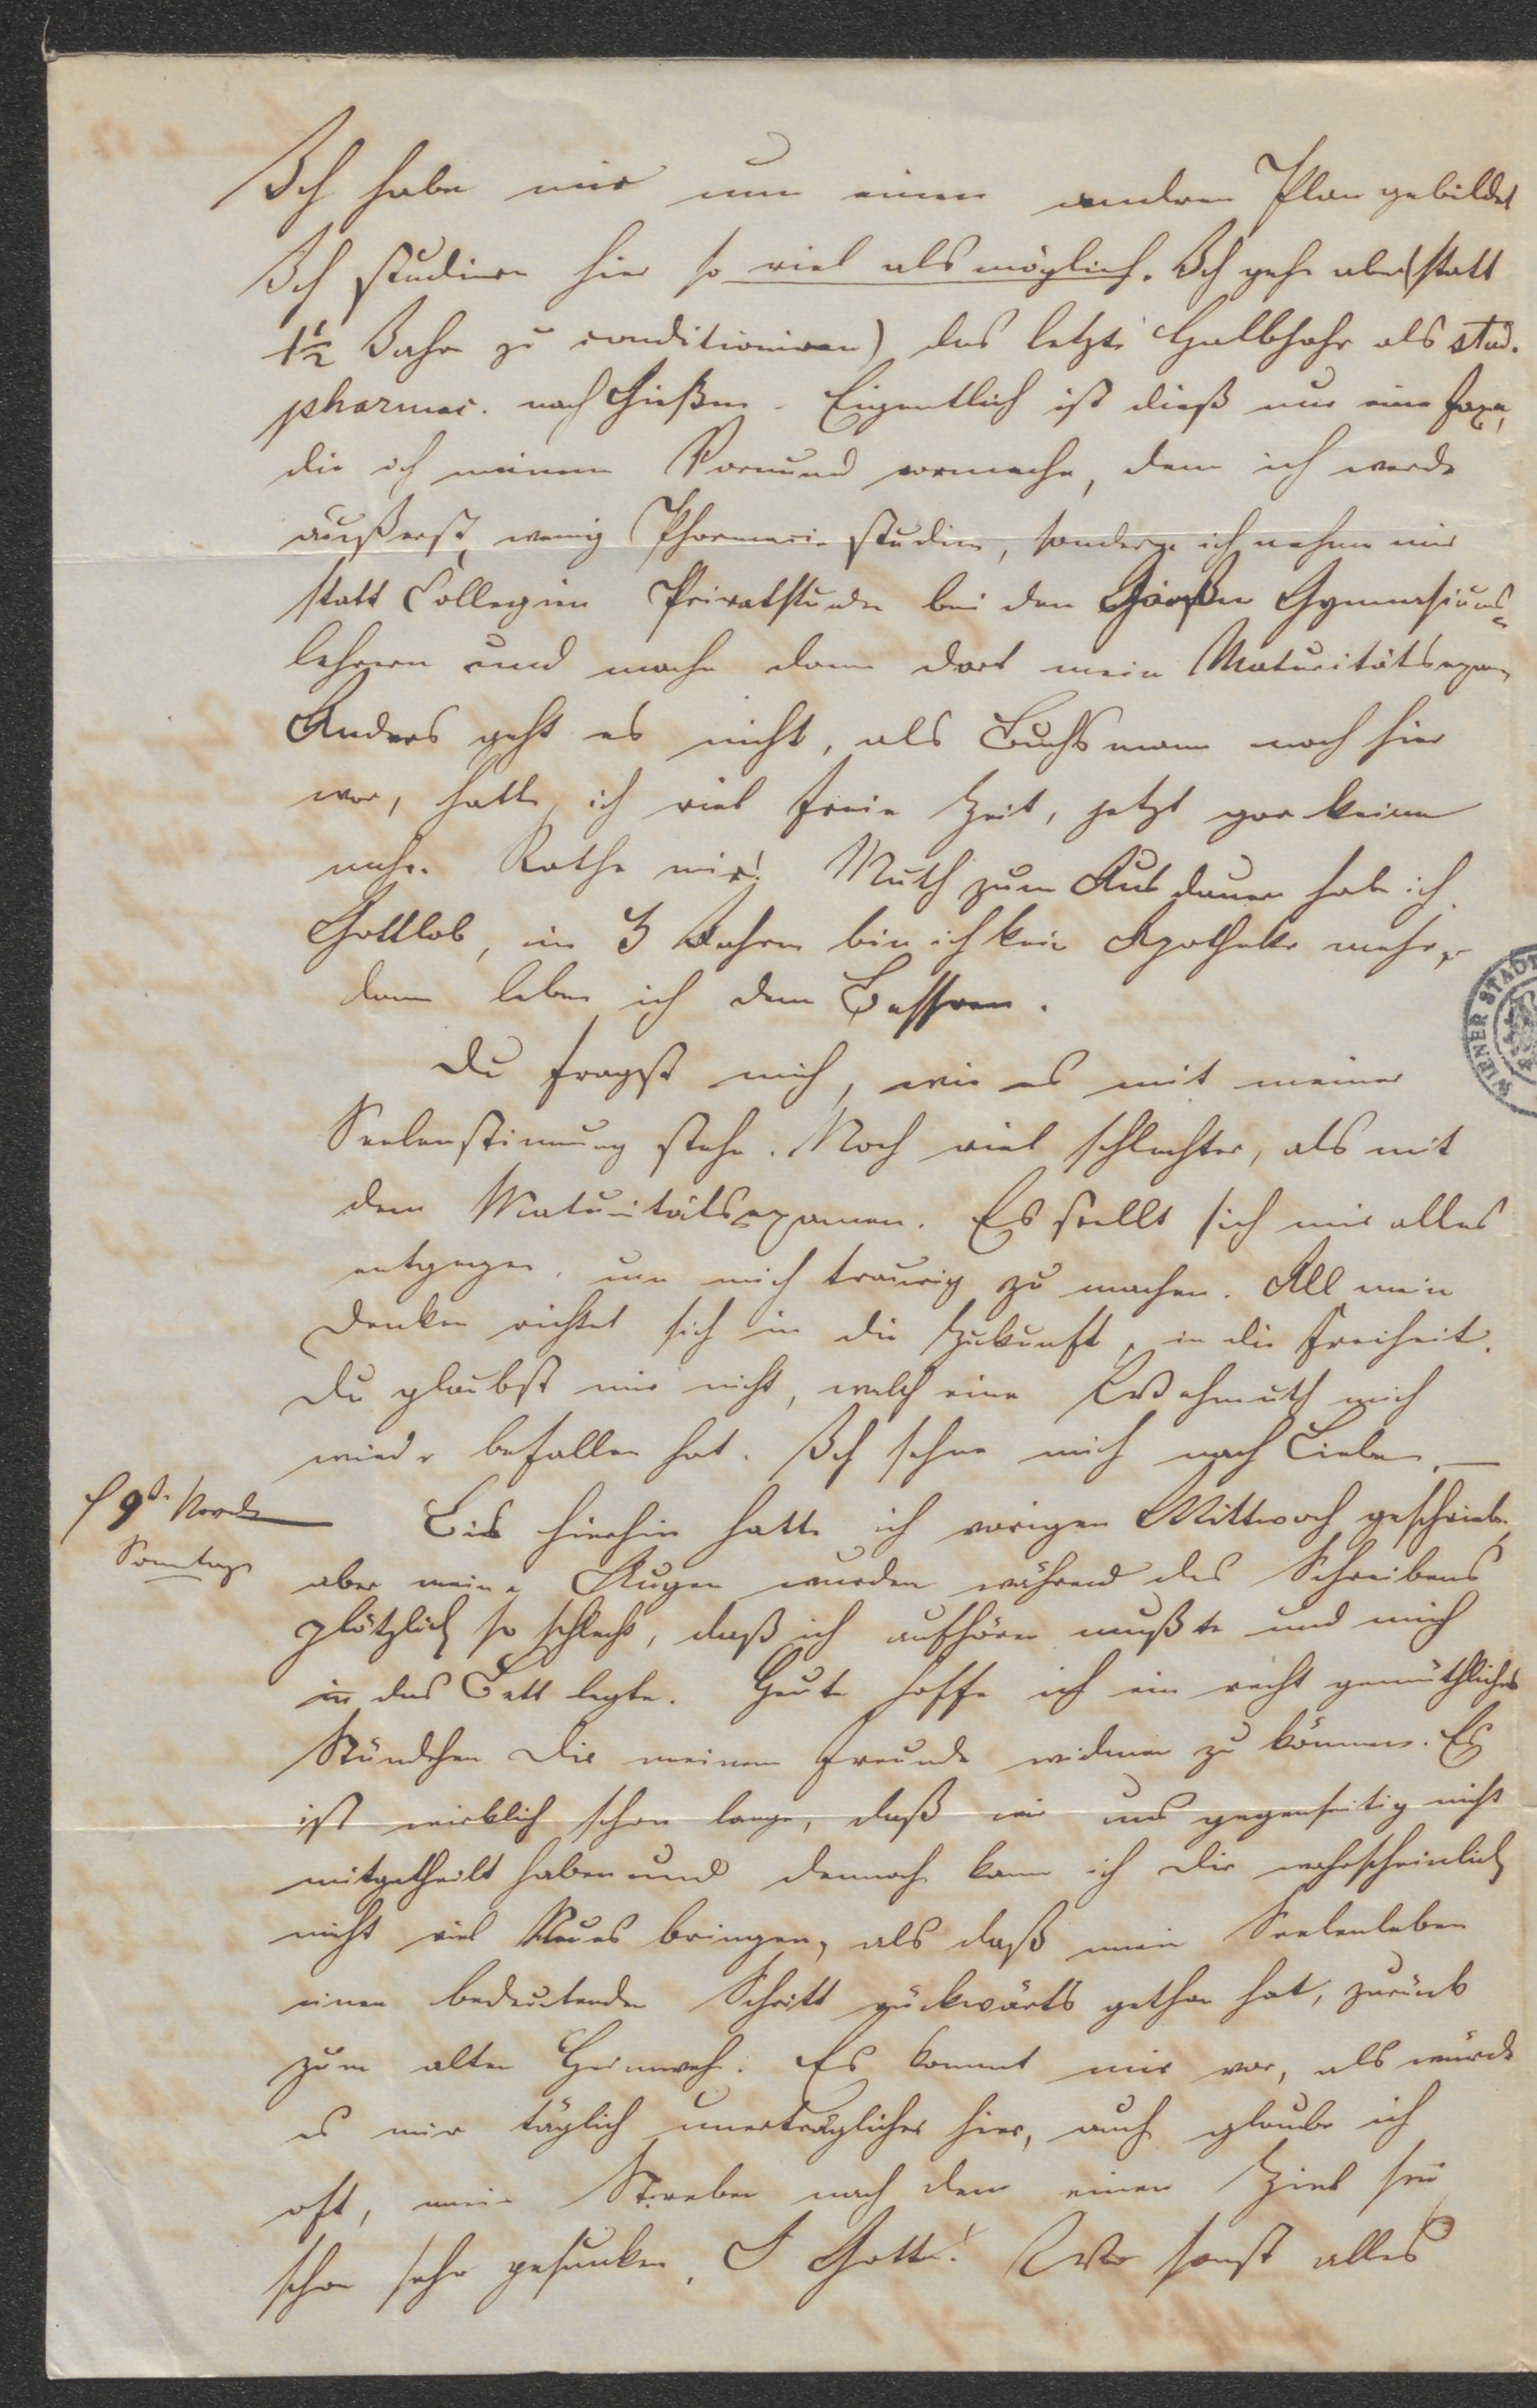 Ich habe mir nun einen andren Plan gebildet
Ich studiere hier so viel als möglich. Ich gehe aber (statt
1½ Jahr zu conditioniren) das letzte Halbjahr als stud.
pharmac. nach Gießen. Eigentlich ist dieß nur eine Faxe,
die ich meinem Vormund vormache, denn ich werde
äußerst wenig Pharmacie studiren, sondern ich nehme mir
statt Collegien Privatstunden bei den Gießner Gymnasiums=
lehrern und mache dann dort mein Maturitätsexam
Anders geht es nicht, als Buchsmann noch hier
war, hatte ich viel freie Zeit, jetzt gar keine
mehr. Rathe mir! Muth zum Ausdauern habe ich
Gottlob, in 3 Jahren bin ich kein Apotheker mehr,
dann lebe ich dem Besseren.
Du fragst mich, wie es mit meiner
Seelenstimmung stehe. Noch viel schlechter, als mit
dem Maturitätsexamen. Es stellt sich mir alles
entgegen, um mich traurig zu machen. All mein
Denken richtet sich in die Zukunft, in die Freiheit.
Du glaubst mir nicht, welch eine Wehmuth mich
wieder befallen hat. Ich sehne mich nach Liebe. —
9t. Novb
Sonntags
Bis hierhin hatte ich vorigen Mittwoch geschrieben,
aber meine Augen wurden während des Schreibens
plötzlich so schlecht, daß ich aufhören mußte und mich
in das Bett legte. Heute hoffe ich ein recht gemüthliches
Stündchen Dir meinem Freunde widmen zu können. Es
ist wirklich schon lange, daß wir uns gegenseitig nichts
mitgetheilt haben und dennoch kann ich Dir wahrscheinlich
nicht viel Neues bringen, als daß mein Seelenleben
einen bedeutenden Schritt rückwärts gethan hat, zurück
zum alten Heimweh. Es kommt mir vor, als würde
es mir täglich unerträglicher hier, auch glaube ich
oft, mein Streben nach dem einen Ziel sei
schon sehr gesunken. O Gott! Wo sonst alles
WIENER STADT